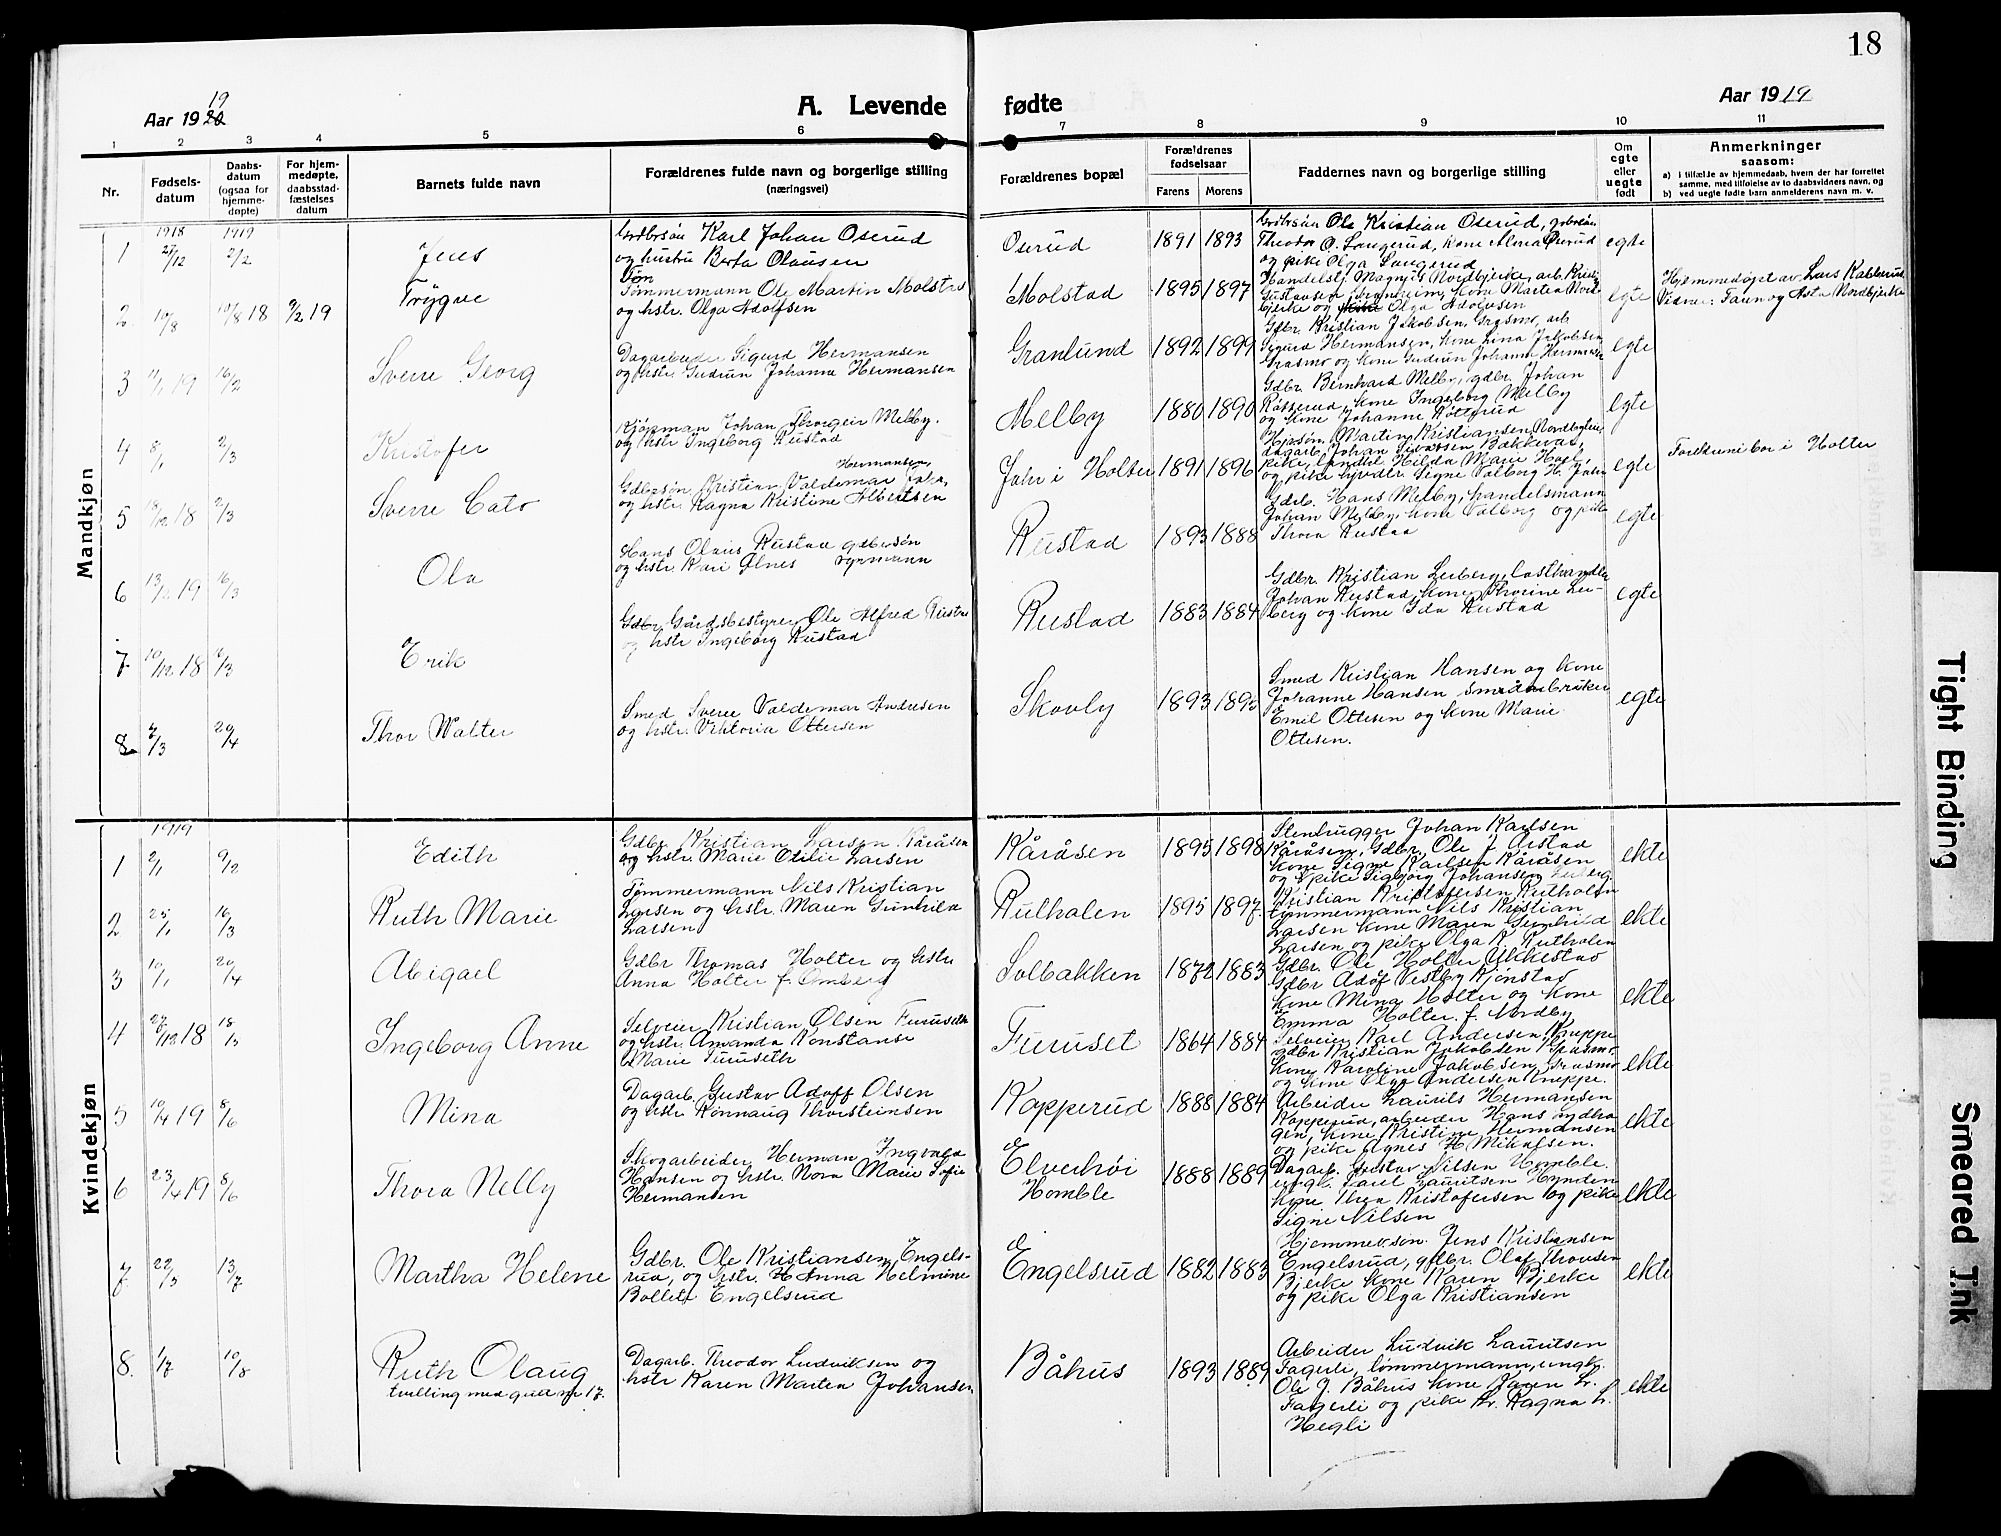 18
Aar 1919
A. Levende fødte
Aar 1919
1 2 3 4 5 6 7 8 9 10 11
Nr.
Fødsels-
datum
Daabs-
datum
(ogsaa for
hjemme-
døpte)
For hjem-
medøpte,
daabsstad-
fæstelses
datum
Barnets fulde navn
Forældrenes fulde navn og borgerlige stilling
(næringsvei)
Forældrenes bopæl
Forældrenes
fødselsaar
Farens Morens
Faddernes navn og borgerlige stilling
Om
egte
eller
uegte
født
Anmerkninger
saasom:
a) i tilfælde av hjemmedaab, hvem der har forrettet
samme, med tilføielse av to daabsvidners navn, og
b) ved uegte fødte barn anmelderens navn m. v.
Mandkjøn
1918 1919
1 27/12 2/2 Jens
Grdbrsøn Karl Johan Oserud
og hustru Berta Olausen
Oserud 1891 1893
Grdbrsøn Ole Kristian Oserud, gdbrsøn
Theodor O. Langerud, kone Alma Oserud
og pike Olga Langerud
egte
2 10/8 10/8 18 9/2 19 Trygve
Tøm
Tømmermann Ole Martin Molstad
og hstr. Olga Adolfsen
Molstad 1895 1897
Handelsf. Magnus Nordbjerke, arb. Kristi
Gustavsen, kone Martea Nord-
bjerke og Olga Adolfsen
egte
Hjemmedøpt av Lars Kalstad
Vidner: Faun og Asta Nordbjerke
3 11/1 19 16/2 Sverre Georg
Dagarbeider Sigurd Hermansen
og hstr. Gudrun Johanne Hermansen
Granlund 1892 1899
Gdbr. Kristian Jakobsen, Grasmo, arb
Sigurd Hermansen, kone Lina Jakobsen
Grasmo og kone Gudrun Johanne Hermansen
egte
4 8/1 2/3 Kristofer
Kjøpman Johan Thorgeir Melby.
og hstr Ingeborg Rustad
Melby 1880 1890
Gdbr. Bernhard Melby, gdbr. Johan
Røtterud, kone Ingeborg Melby
og kone Johanne Røtterud
egte
5 18/12 18 2/3 Sverre Cato
Hermansen,
Gdbrsøn Kristian Valdemar
og hstr. Ragna Kristine Albertsen
Jahr i Holter 1891 1896
Hjsøn. Martin Kristiansen
dagarb. Johan Sivertsen Bakkevar,
pike, Hilda Marie Hoel,
og pike Signe Valborg H. Jahr
egte
Foreldrene bor i Holter
6 13/1 19 16/3 Ola
Hans Olaus Rustad gdbrsøn
og hstr. Kari Ølnes
Rustad 1893 1888
Gdrb. Hans Melby, handelsmann
Johan Melby, kone Valborg og pike
Thora Rustad
egte
7 10/12 18 Erik
Gdbr Gårdsbestyrer Ole Alfred Rustad
og hstr Ingeborg Rustad
Rustad 1883 1884
Gdbr. Kristian Leiberg, lasthandler
Johan Rustad, kone Thorine Lei-
berg og kone Ida Rustad
egte
8 2/3 20/4 Thor Walter
Smed Sverre Valdemar Andresen
og hstr. Viktoria Ottersen
Skovly 1893
Smed Kristian Hansen og kone
Johanne Hansen
Emil Ottesen og kone Marie
Ottesen.
egte
Kvindekjøn
1919
1 2/1 9/2 Edith
Gdbr. Kristian Larsen Kåråsen
og hstr. Marie Otilie Larsen
Kåråsen 1895 1898
Stenhugger Johan Karlsen
Kåråsen, Gdbr. Ole J. Arstad
kone Signe Karlsen Kåråsen
og pike Sigbjørg Johansen
ekte
2 25/1 16/3 Ruth Marie
Tømmermann Nils Kristian
Larsen og hstr. Maren Gunhild
Larsen
Rutholen 1895 1897
Kristian Kristoffersen Rutholen
tømmermann Nils Kristian
Larsen kone Maren Gunhild
Larsen og pike Olga R. Rutholen
ekte
3 10/1 20/4 Abigael
Gdbr Thomas Holter og hstr
Anna Holter f. Omberg
Solbakken 1872 1883
Gdbr. Ole Holter Ukkestad
Gdbr Adolf Vestby Kjønstad
kone Mina Holter og kone
Emma Holter f. Nordby
ekte
4 18 18/5 Ingeborg Anne
Selveier Kristian Olsen Furuseth
og hstr. Amanda Konstanse
Marie Furuseth
Furuset 1864 1884
Selveier Karl Andersen Kneppe
gdbr Kristian Jakobsen Grasmo.
kone Karoline Jakobsen Grasmo
og kone Olga Andersen Kneppe.
ekte
5 10/4 19 8/6 Mina
Dagarb. Gustav Adolf Olsen
og hstr Rønnaug Thorsteinsen
Kopperud 1888 1884
Arbeider Laurits Hermansen
Kopperud, arbeider Hans Lydha
gen, kone Kristine Hermansen
og pike Agnes H. Mikalsen.
ekte
6 23/4 19 8/6 Thora Nelly
Skogarbeider Herman Ingvald
Hansen og hstr. Nora Marie Sofie
Hermansen
Elverhøi
Homble
1888 1889
Dagarb. Gustav Nilsen Homble.
ungk. Karl Lauritsen Hynden
kone Thea Kristofersen og pike
Signe Nilsen
ekte
7 22/3 13/7 Martha Helene
Gdbr. Ole Kristiansen Engels-
rud, og hstr. H Anna Helmine
Bollet Engelsrud
Engelsrud 1882 1883
Hjemmevsøn. Jens Kristiansen
Engelsrud, gflbr. Olaf Thovsen
Bjerke kone Karen Bjerke
og pike Olga Kristiansen
ekte
8. 1/7 10/8 Ruth Olaug
tvilling med gutt nr 17.
Dagarb. Theodor Ludviksen og
hstr Karen Martea Johansen
Båhus 1893 1889
Arbeider Ludvik Lauritsen
Fagerli, tømmermann, ungk.
Ole J. Båhus kone Karen Lr.
Fagerli og pike Lr. Ragna L.
Hegli
ekte
Tight Binding
Smeared Ink